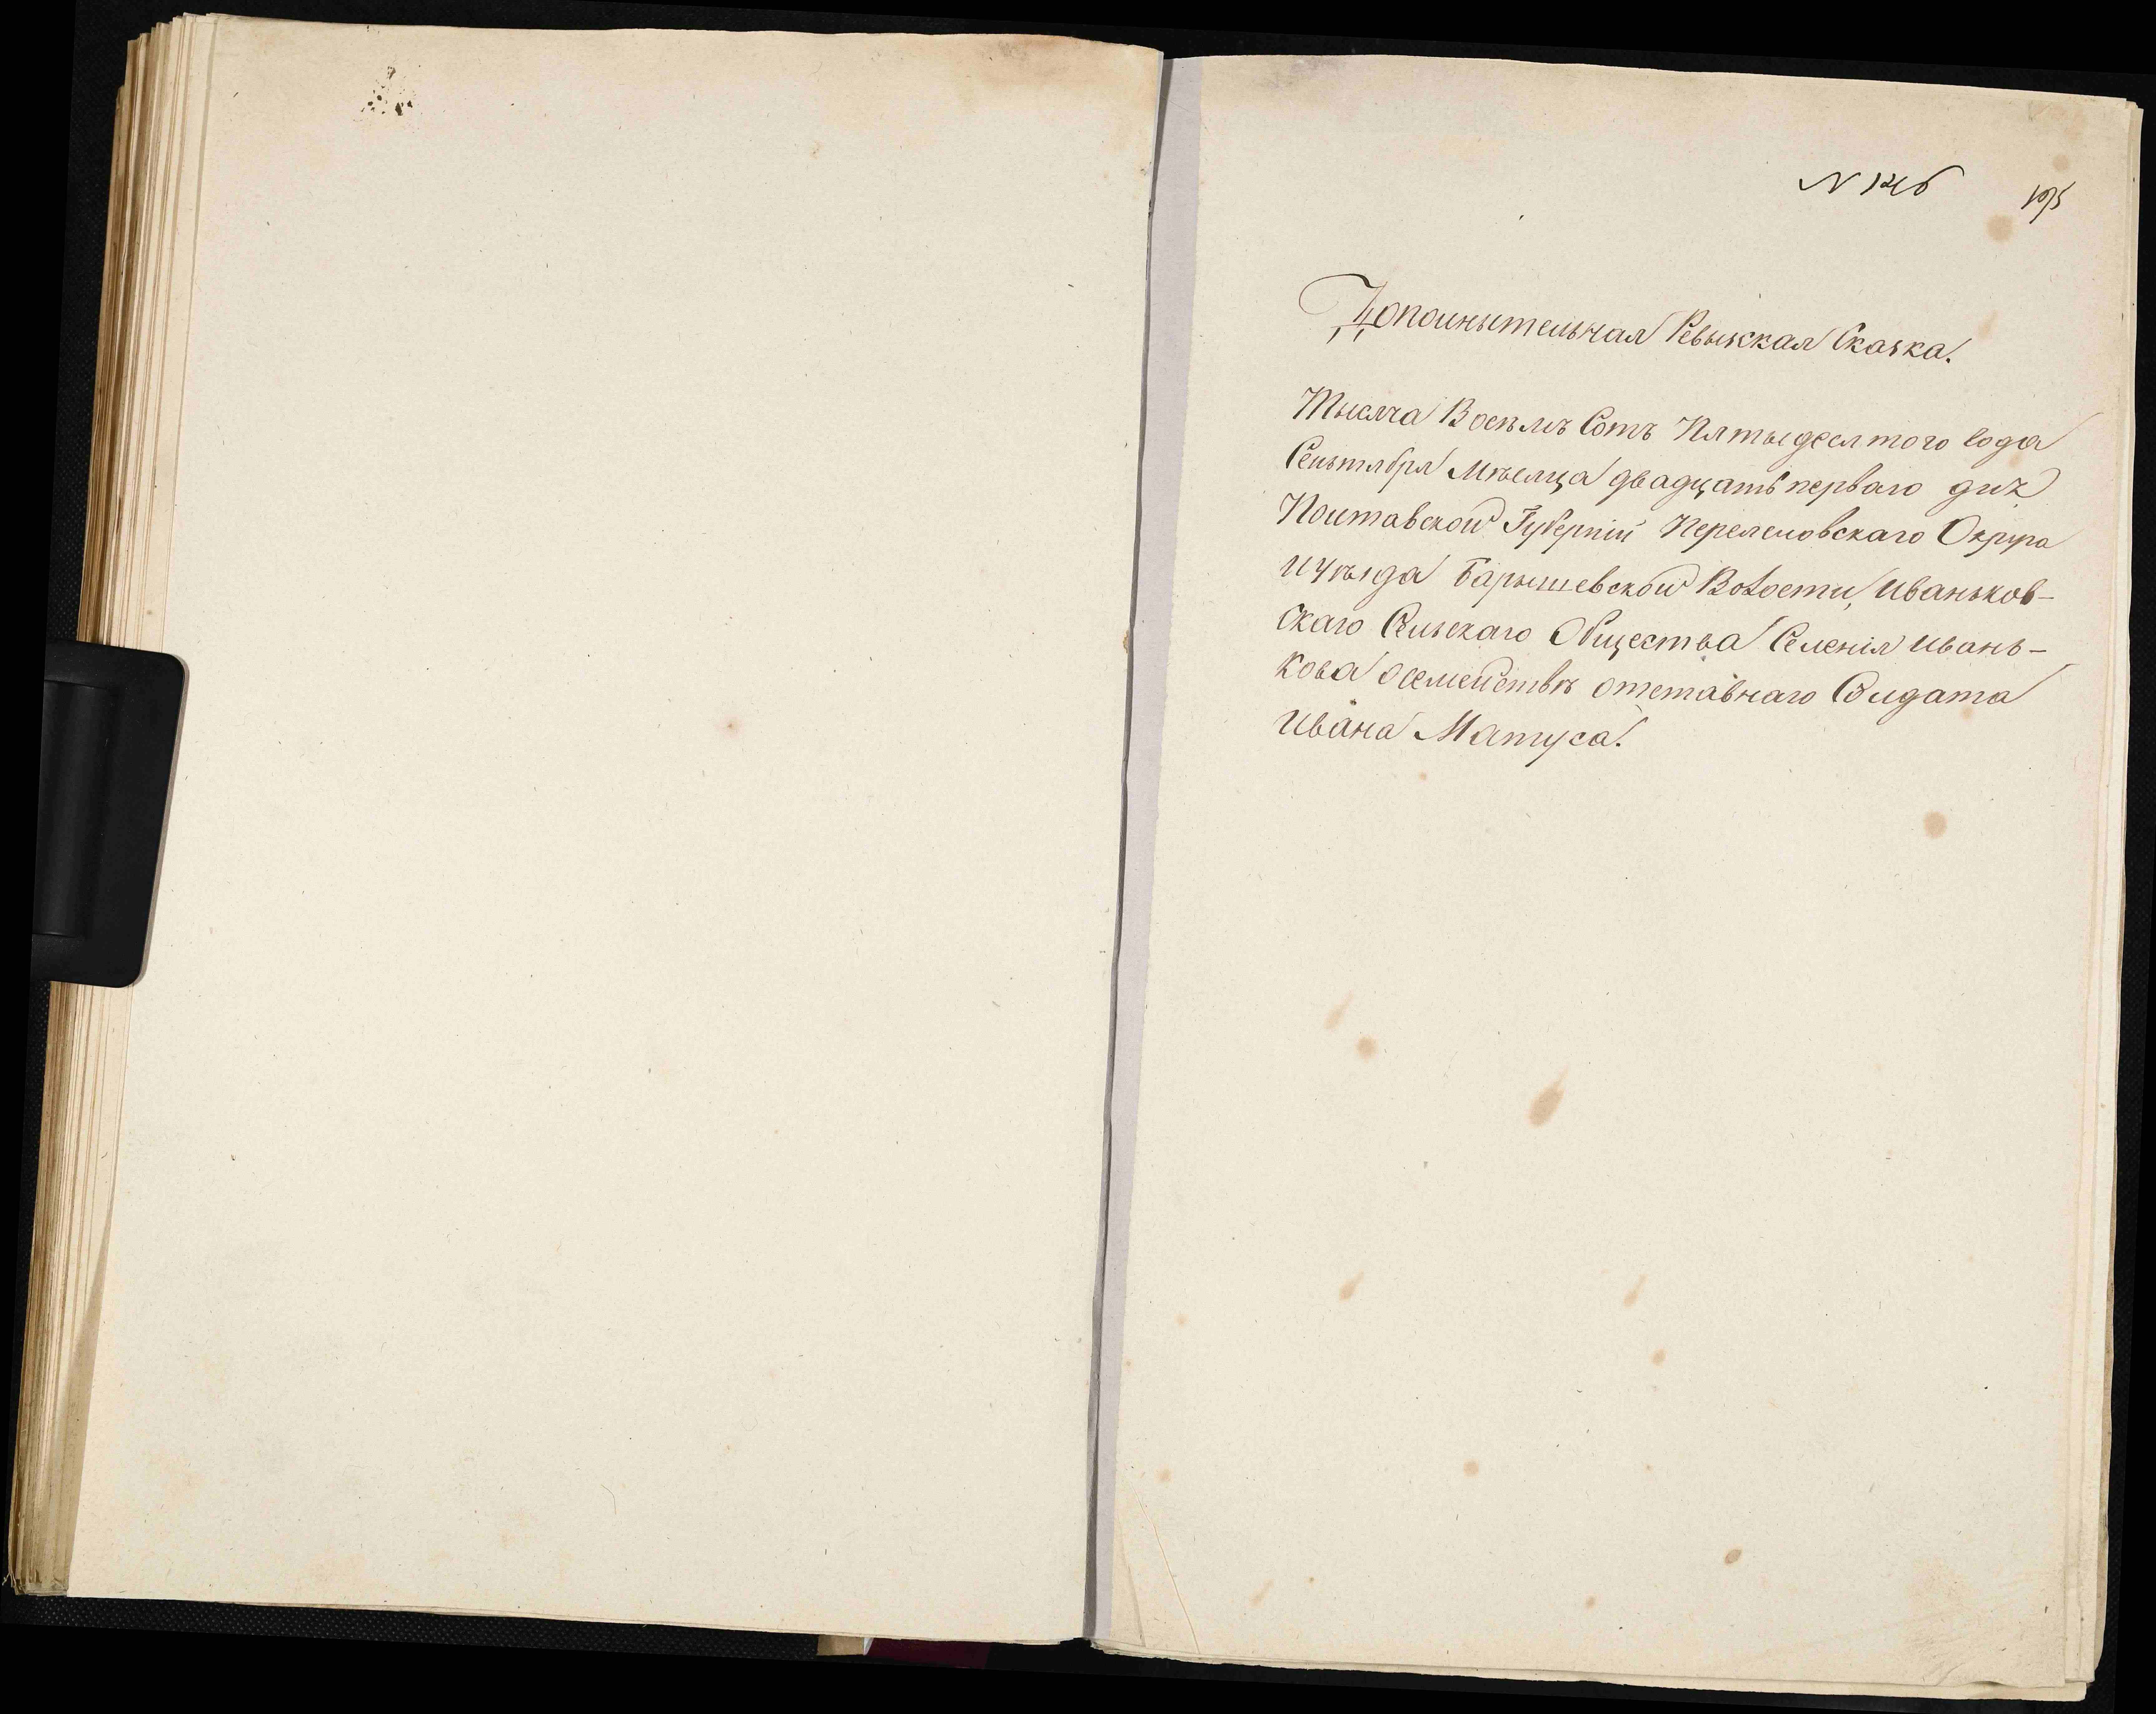 N 146
195
Дополнительная Ревизкая Сказка.
Тысяча Восѣмъ Сотъ Пятыдесятого года
Сентября Мѣсяца двадцать перваго дня
Полтавской Губерніи Переяславскаго Округа
и уѣзда Барышевской Волости, Иваньков-
скаго Сельскаго Общества Селенія Ивань-
кова о семействѣ отставнаго Солдата
Ивана Матуса.